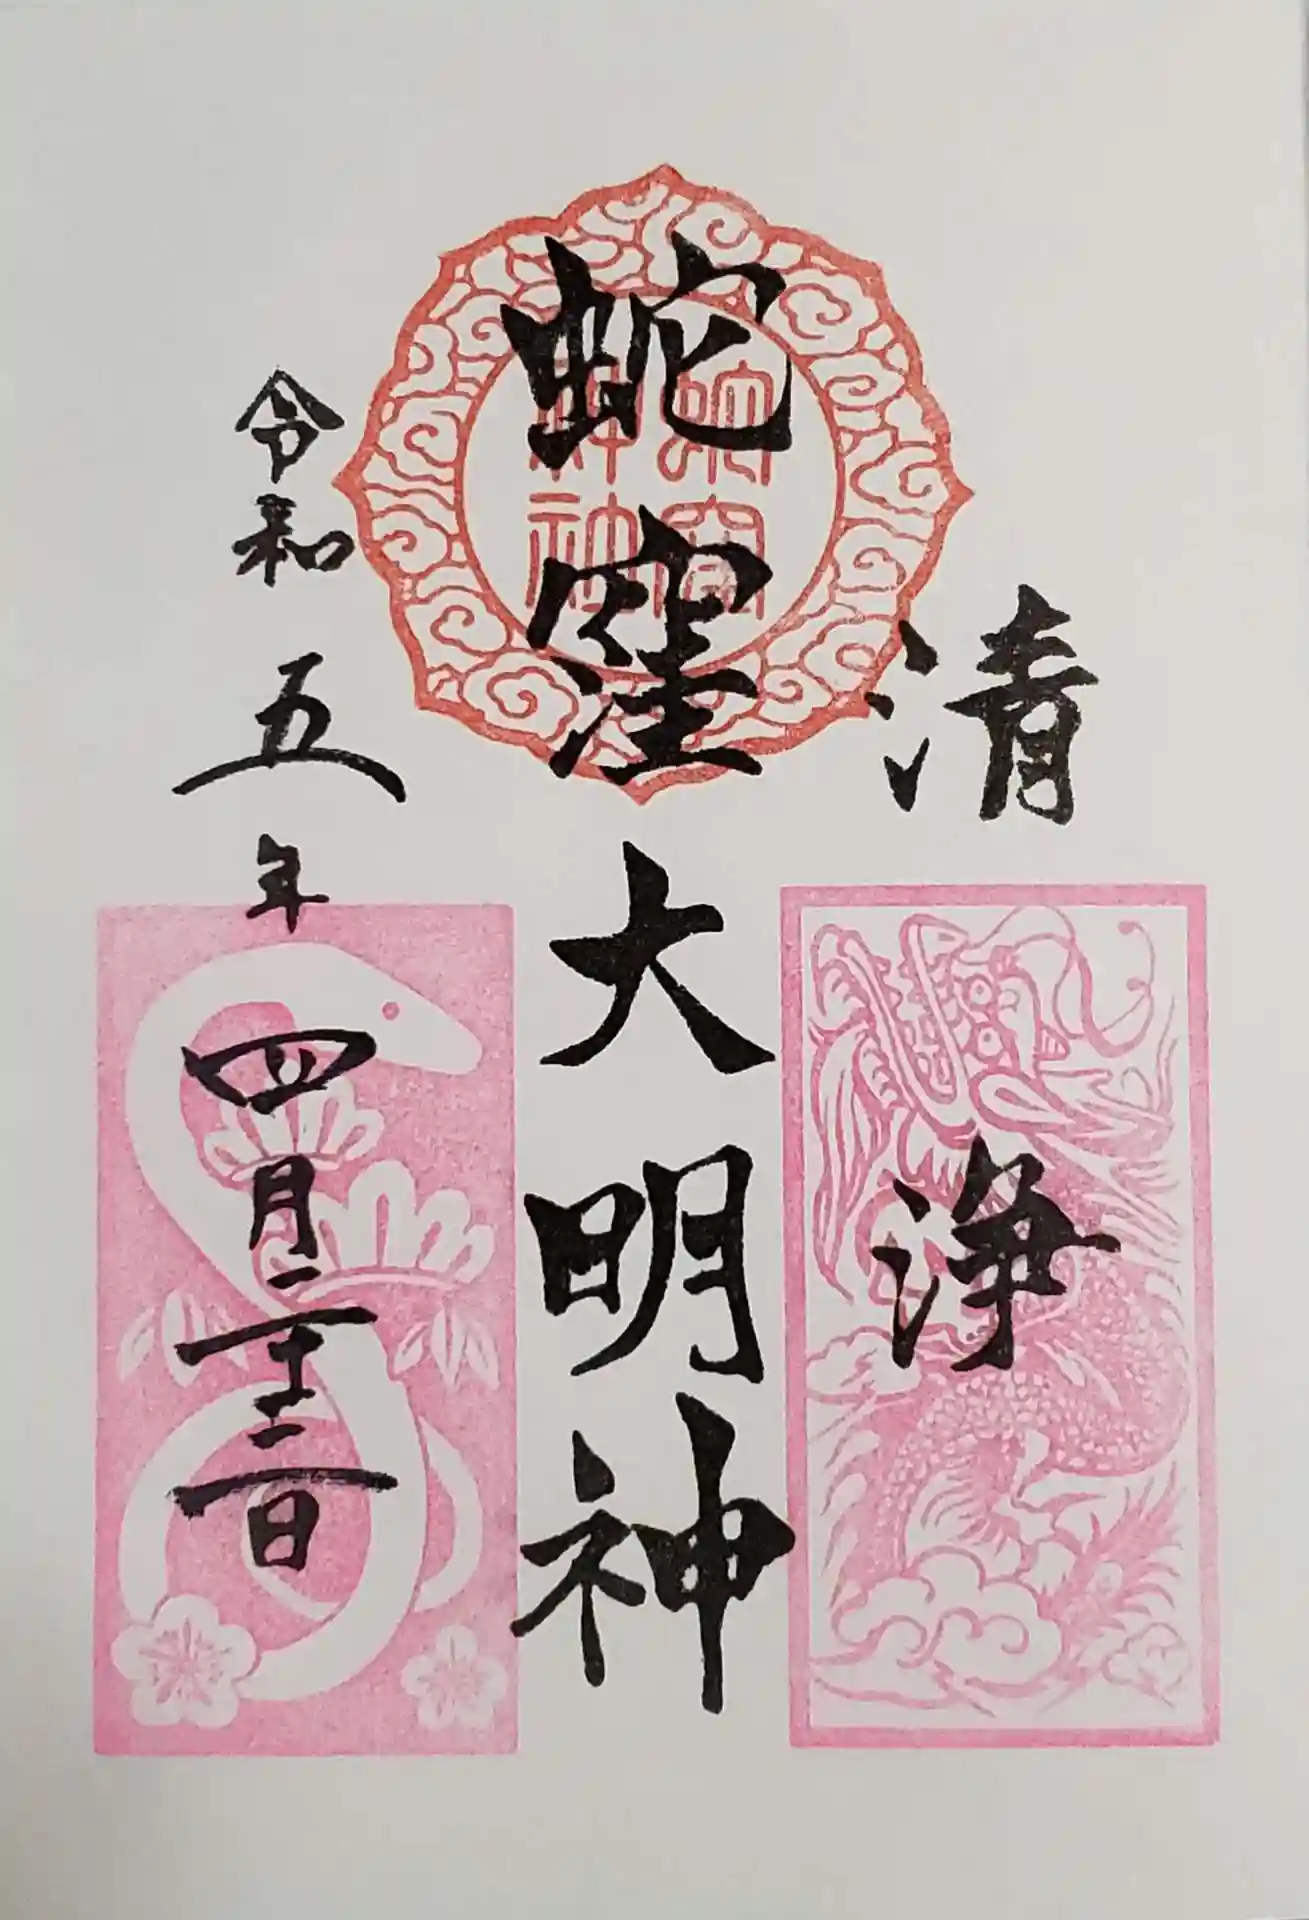 清浄
蛇窪大明神
令和五年四月二十三日